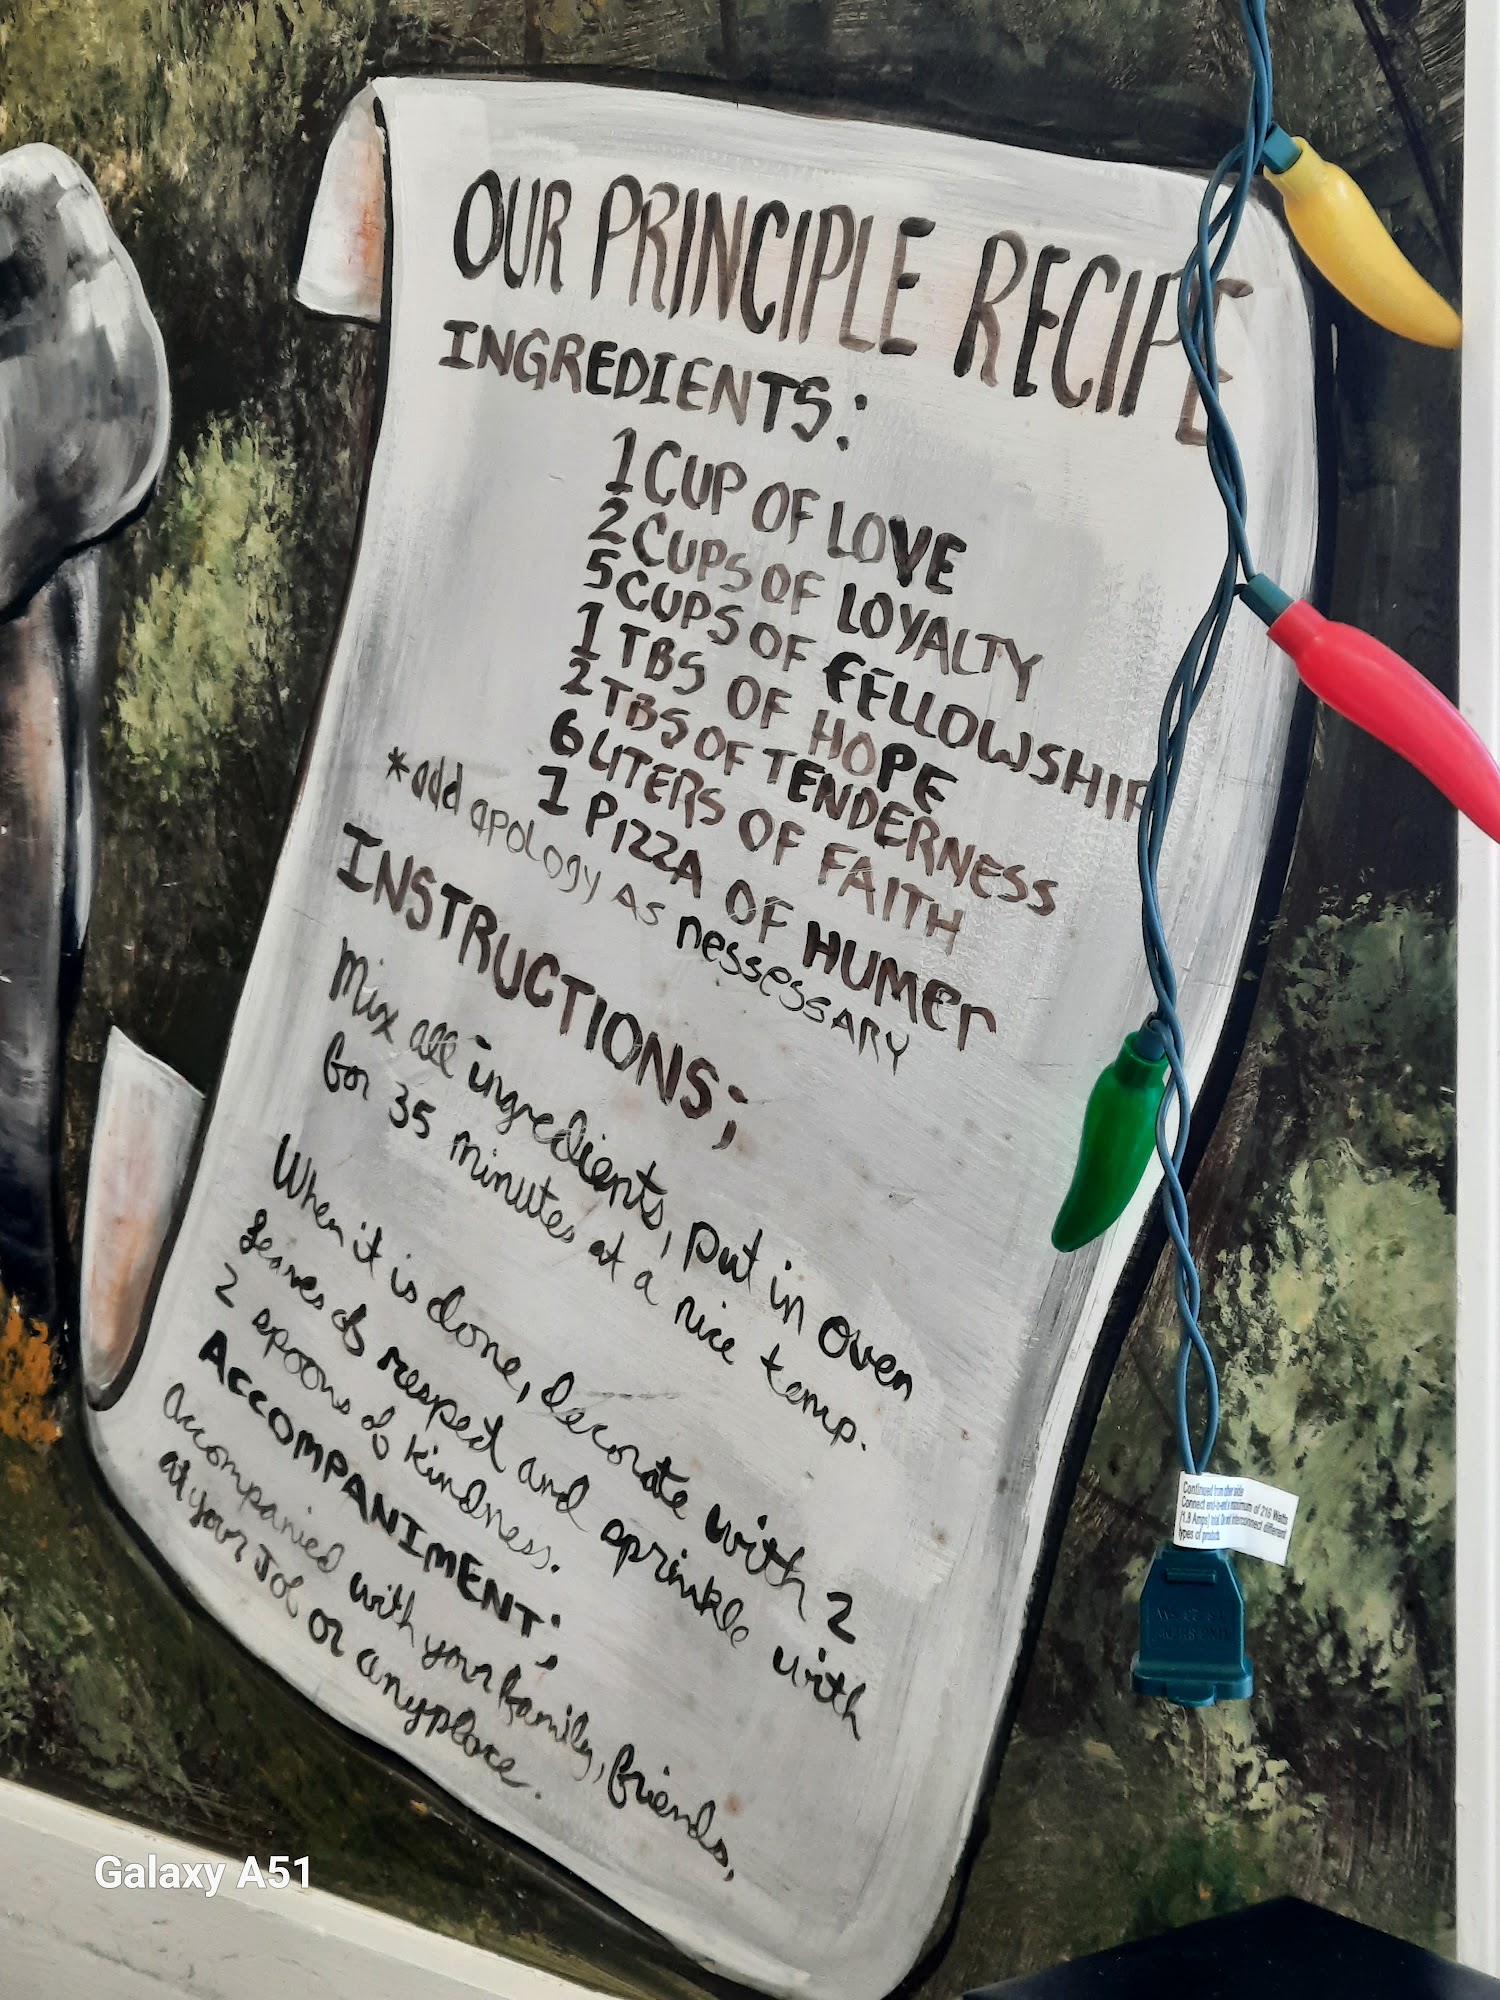 OUR PRINCIPLE RECIPE
INGREDIENTS:
1 CUP OF LOVE
2 CUPS OF LOYALTY
5 CUPS OF FELLOWSHIP
1 TBS OF HOPE
2 TBS OF TENDERNESS
6 LITERS OF FAITH
1 PIZZA OF HUMEr
*add apology AS nessessARY
INSTRUCTIONS;
Mix all ingredients, put in oven
for 35 minutes at a nice temp.
When it is done, decorate with 2
leaves of respect and sprinkle with
2 spoons of kindness.
ACCOMPANIMENT;
Accompanied with your family, friends,
at your Job or anyplace.
Continued from other side
Connect end-to-end a maximum of 216 Watts
(1.8 Amps) total. Do not interconnect different
types of products
Galaxy A51